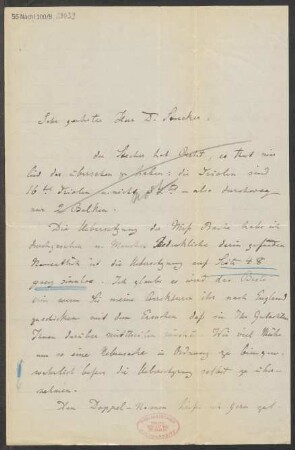 55 Nachl 100/B,
Sehr geehrter Herr D. Strecker.
der Stecher hat Recht, es thut mir
leid das übersehen zu haben: die Triolen sind
16tel Triolen – nicht 32tel – also durchweg
nur 2 Balken.
Die Uebersetzung der Miss Bache habe ich
durchgesehen u. Manches Bedenkliche darin gefunden
Namentlich ist die Uebersetzung auf Seite 48
ganz sinnlos. – Ich glaube es ist das Beste
wenn Sie meine Correcturen ihr nach England
schicken mit dem Ersuchen daß sie Ihr Gutachten
Ihnen darüber mittheilen möchte. Wie viel Mühe
um so eine Nebensache in Ordnung zu bringen,
wahrlich besser die Uebersetzung selbst zu über-
nehmen.
Den Doppel-Namen heiße ich gern gut